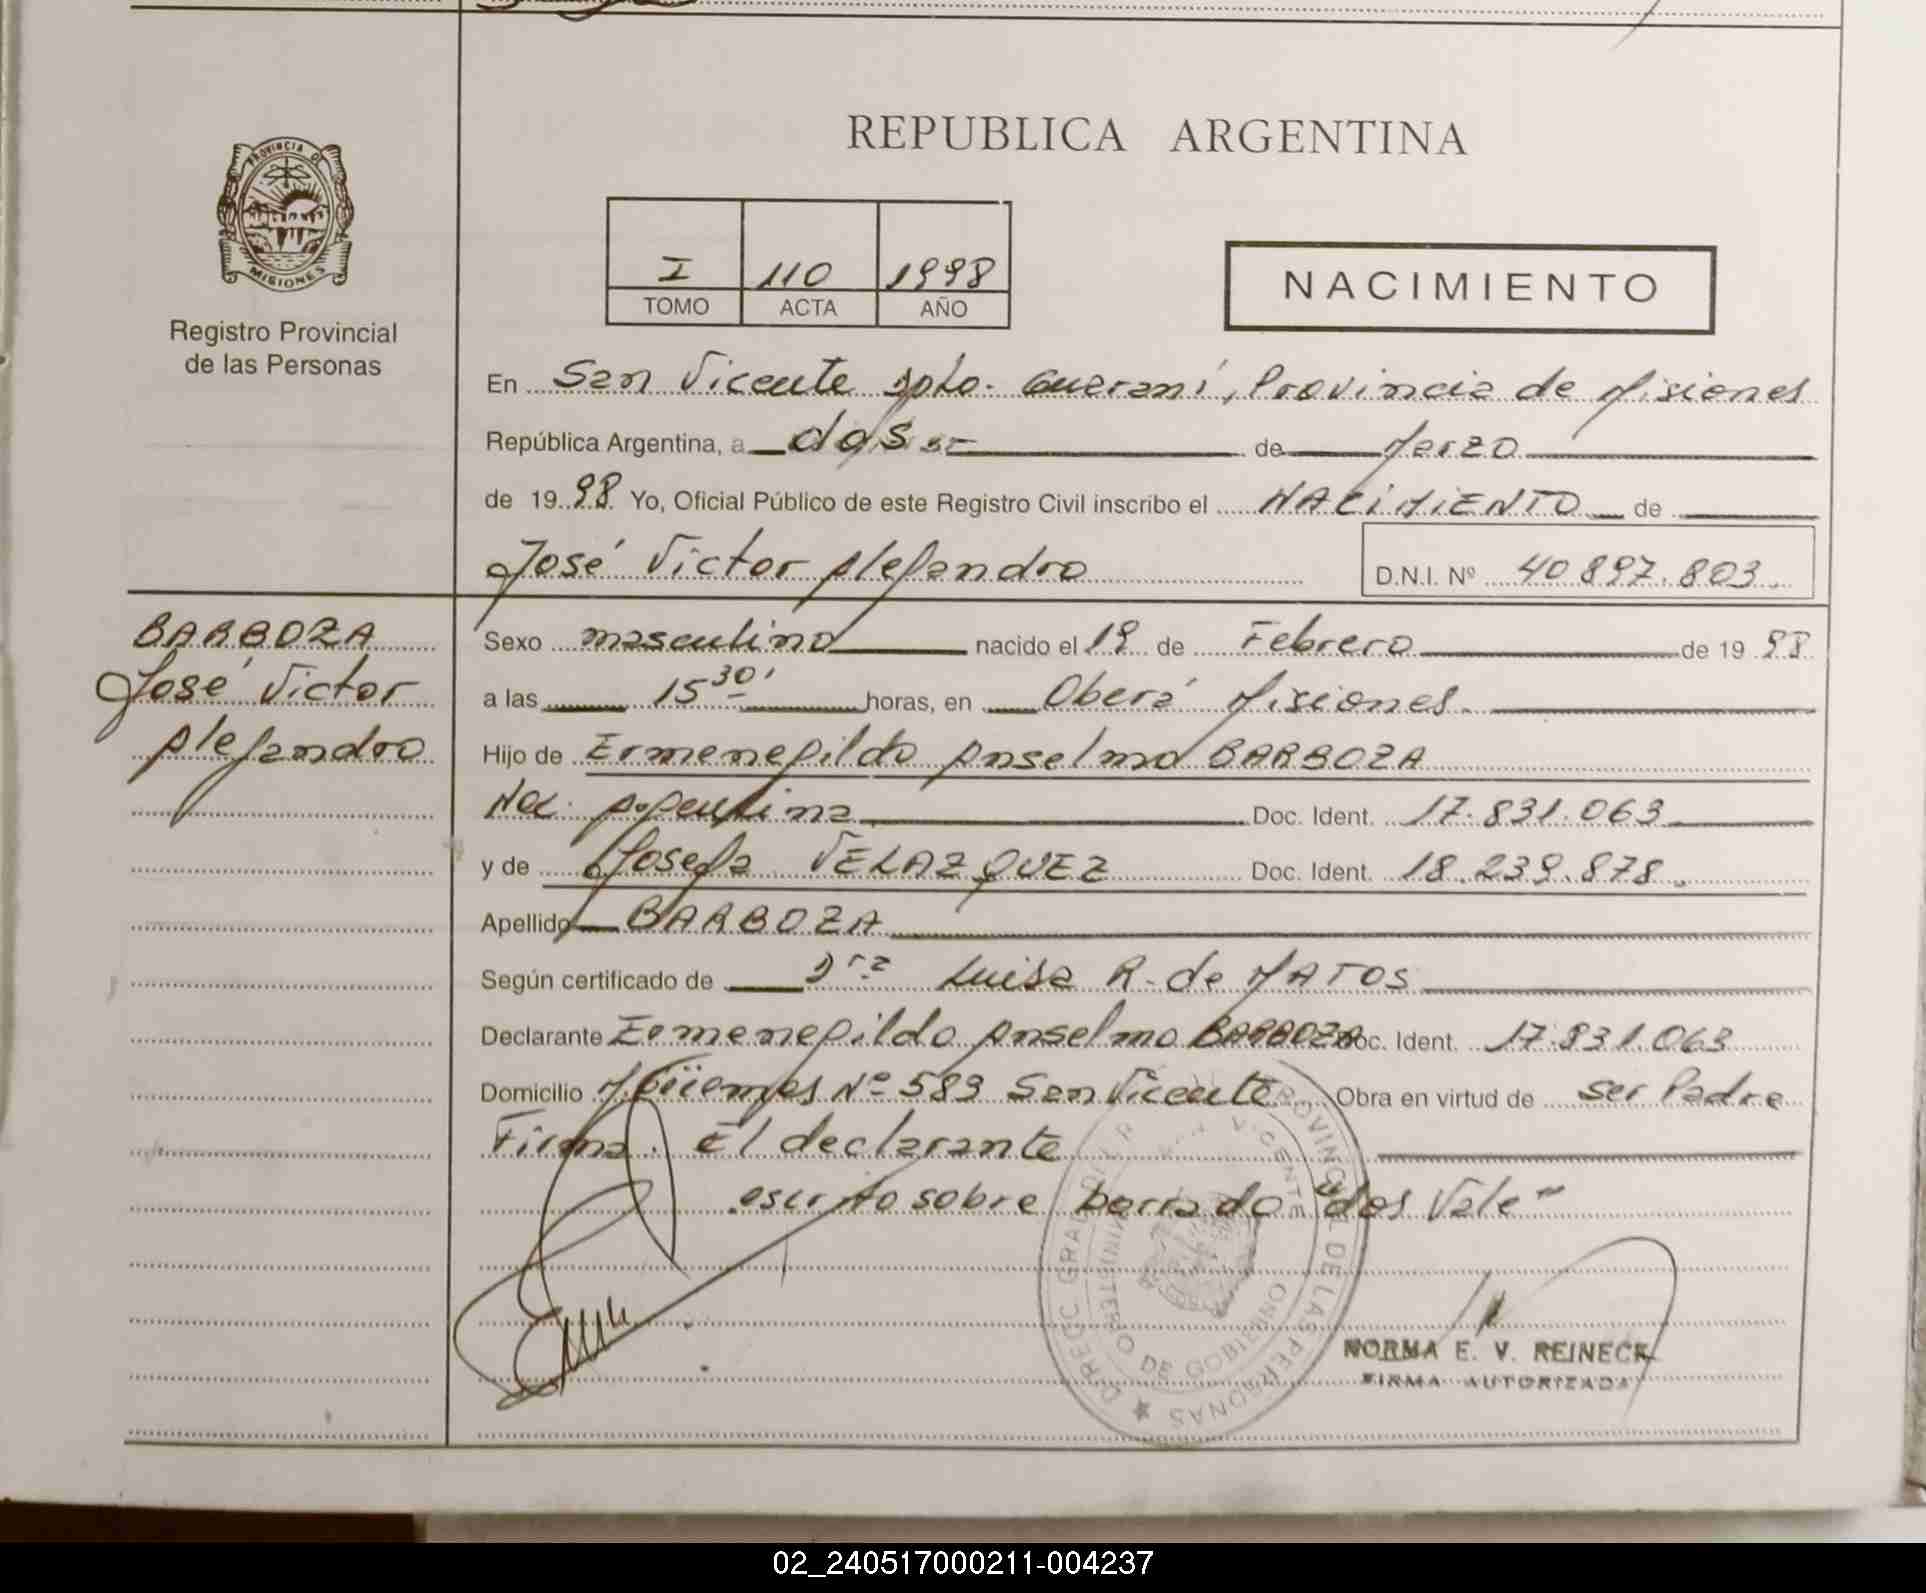 REPUBLICA ARGENTINA
PROVINCIA DE MISIONES
Registro Provincial
de las Personas
I 110 1998
TOMO ACTA AÑO
NACIMIENTO
En San Vicente Dpto. Guaraní, Provincia de Misiones
República Argentina, a dos de Marzo
de 1998 Yo, Oficial Público de este Registro Civil inscribo el NACIMIENTO de
José Victor Alejandro D.N.I. Nº 40897.803
BARBOZA
José Victor
Alejandro
Sexo masculino nacido el 19 de Febrero de 1998
a las 15 30' horas, en Oberá Misiones.
Hijo de Ermenegildo Anselmo BARBOZA
Nac. Argentina Doc. Ident. 17.831.063
y de Josefa VELAZQUEZ Doc. Ident. 18.239.878.
Apellido BARBOZA
Según certificado de Dra Luisa R. de MATOS
Declarante Ermenegildo Anselmo BARBOZA Doc. Ident. 17.831.063
Domicilio Güemes Nº 589 San Vicente Obra en virtud de ser Padre
Firma. El declarante
escrito sobre borrado "dos Vale"
DIRECC. GRAL. DEL R. PROVINCIAL DE LAS PERSONAS
SAN VICENTE
MINISTERIO DE GOBIERNO
NORMA E. V. REINECK
FIRMA AUTORIZADA
02_240517000211-004237